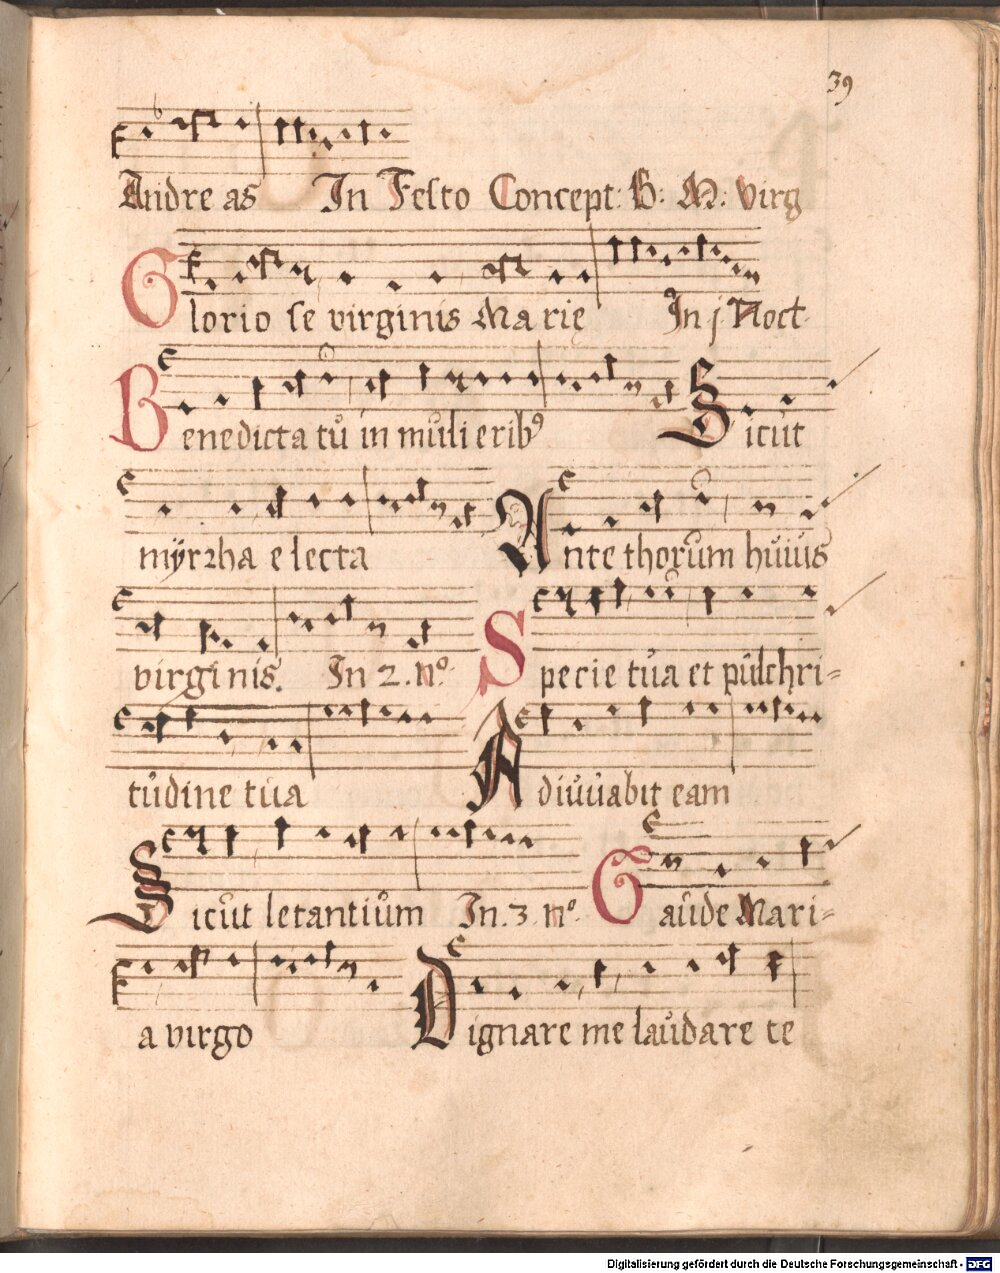 39
Andre as In Festo Concept: B: M: Virg
Glorio se virginis Ma rie In j Noct.
Benedicta tú in múli erib⁹ Sicút
mÿrrha e lecta Ante thorúm húiús
virgi nis. In 2. Nº. Specie túa et púlchri=
túdine túa Adiúúabit eam
Sicút letantiúm In. 3. nº. Gaúde Mari=
a virgo Dignare me laúdare te
Digitalisierung gefördert durch die Deutsche Forschungsgemeinschaft - DFG